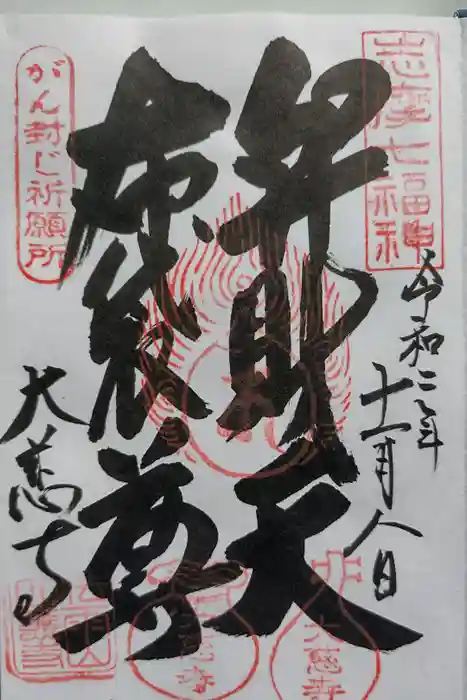 志摩七福神
令和二年
十一月八日
弁財天
布袋尊
がん封じ祈願所
大慈寺
大慈寺